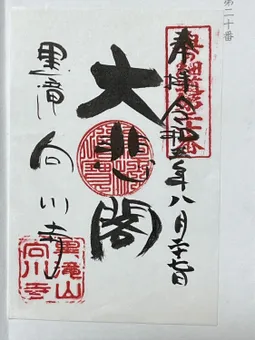 第二十番
奉拝 令和五年八月
大悲閣
黒滝 向川寺
黒滝山
向川寺